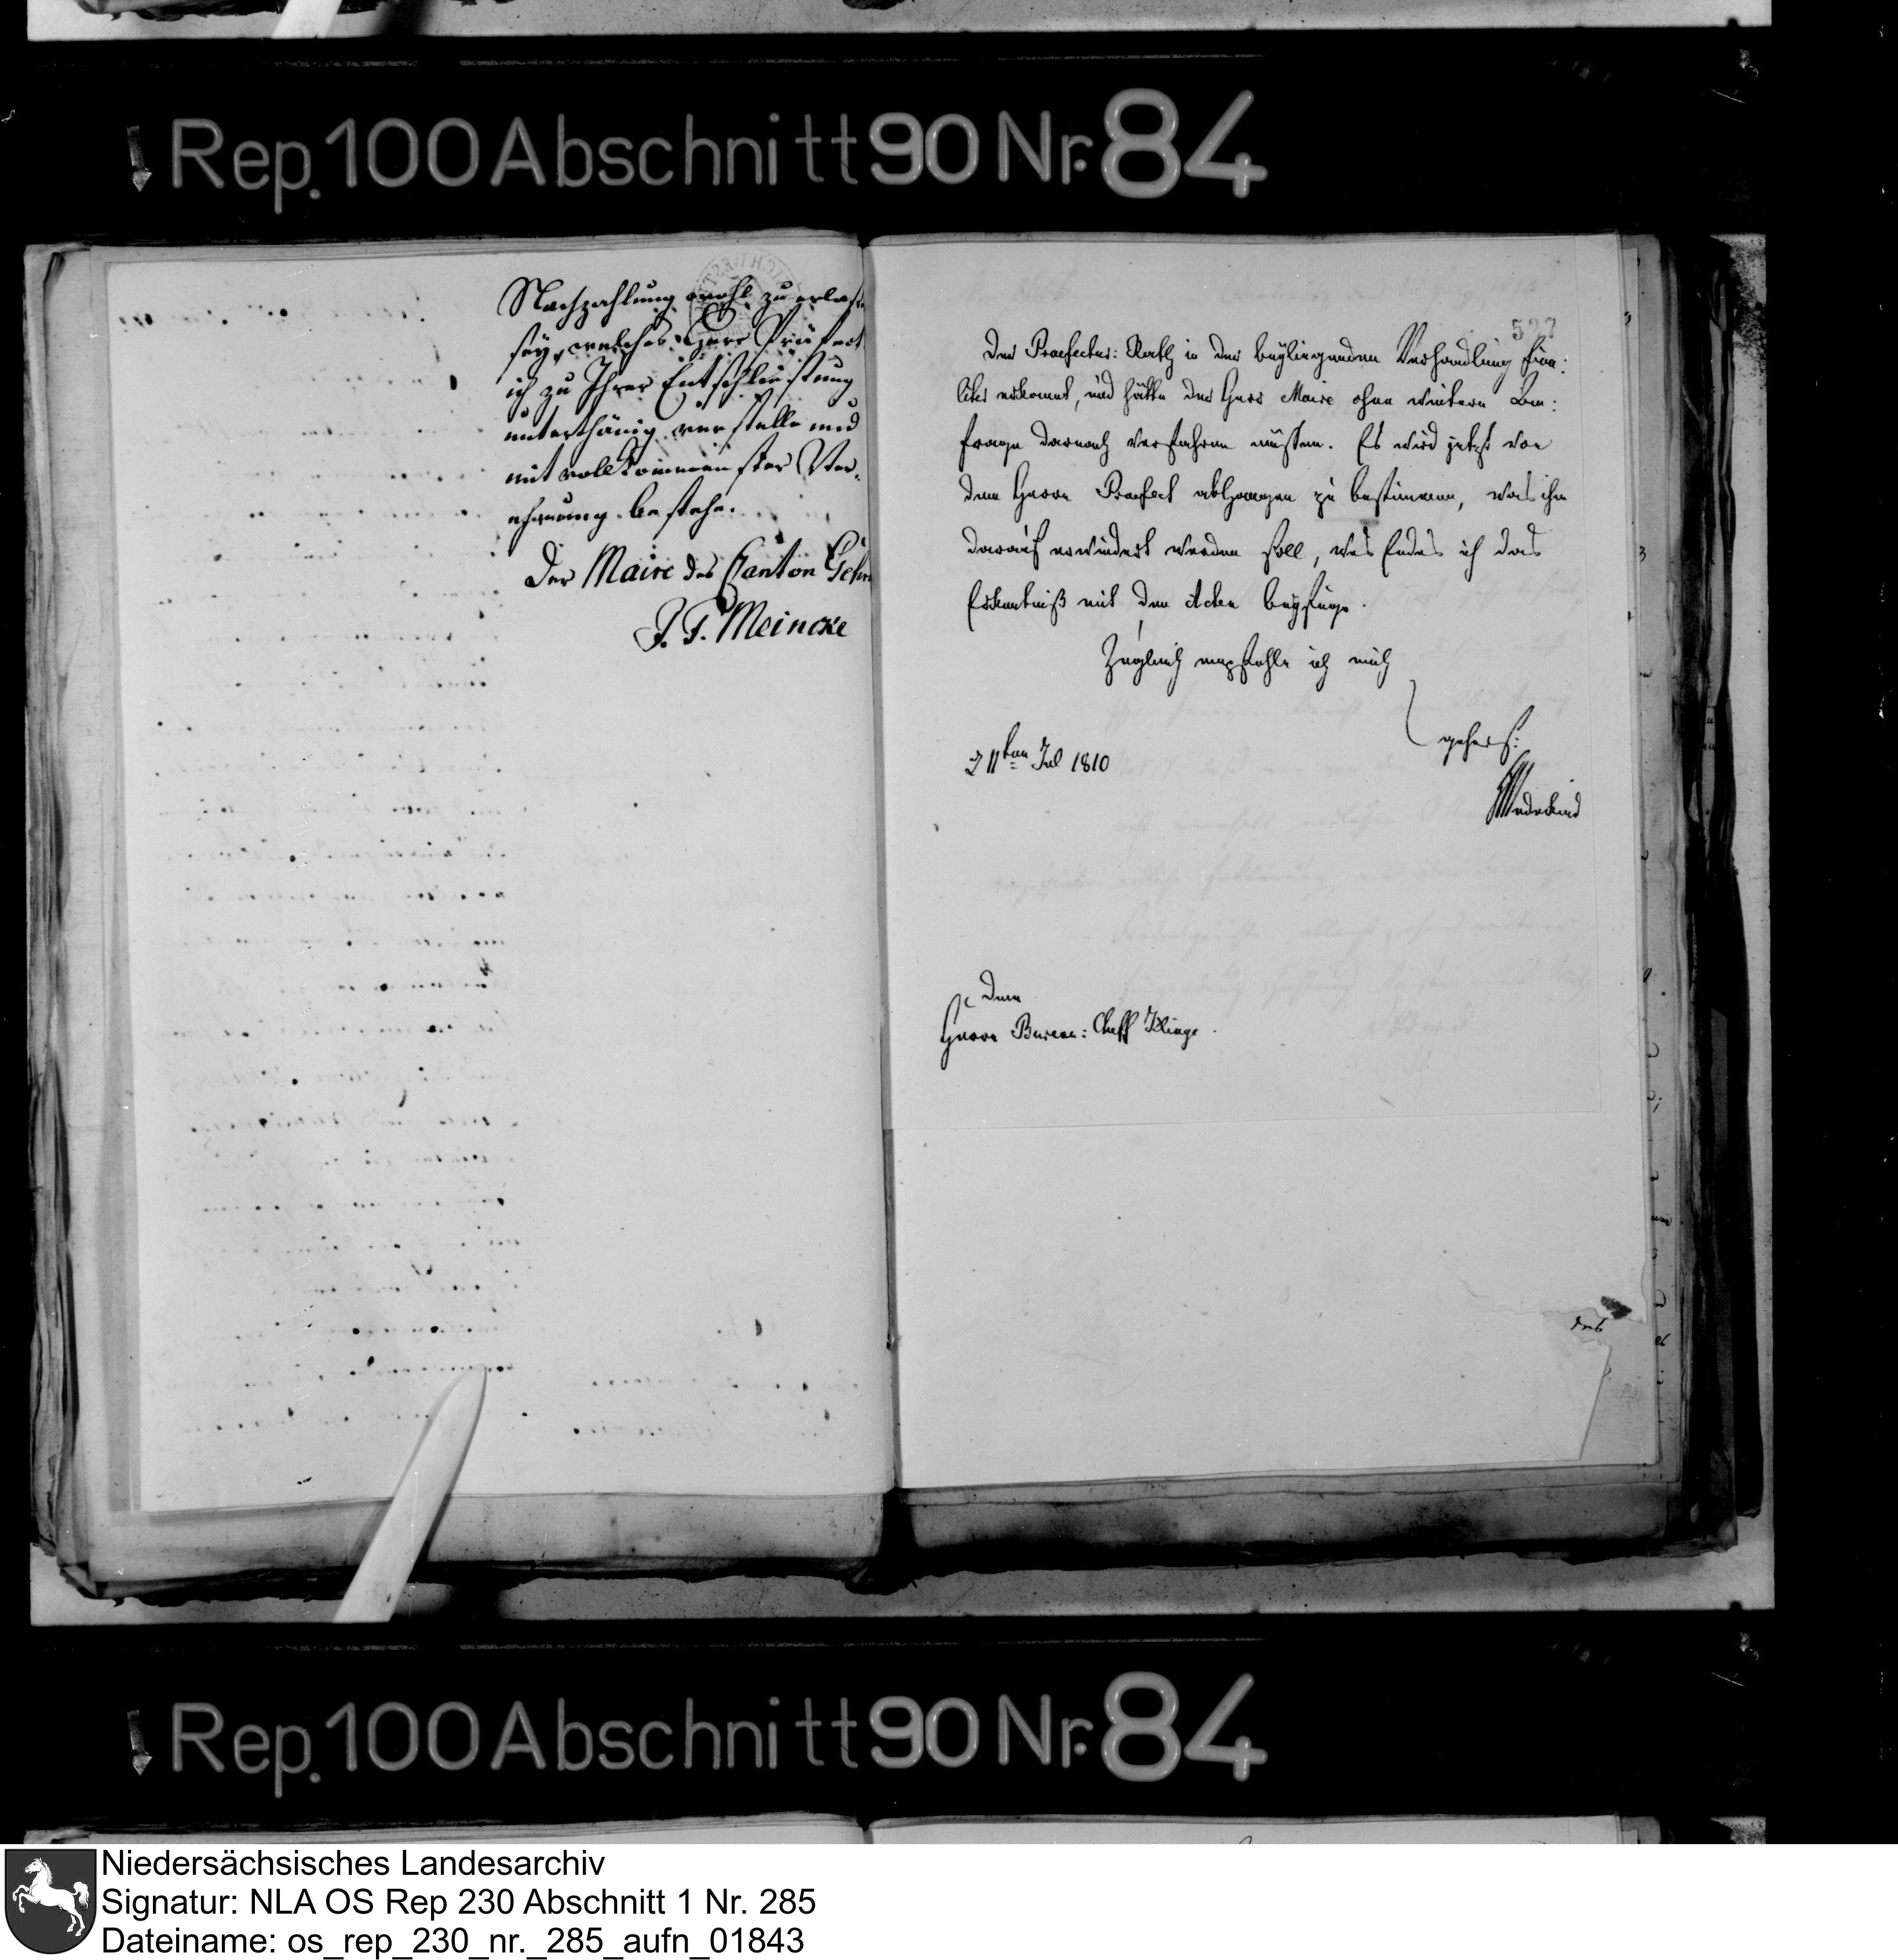 Rep. 100 Abschnitt 90 Nr. 84
Nachzahlung wohl zu erlassen
sey, welches Herr Präfect
ich zu Ihrer Entschliessung
unterthänig verstelle und
mit vollkommenster Ver-
ehrung bestehe.
Der Maire des Canton Gehr
J. F. Meincke
527
Der Praefectur: Rath in der beyliegenden Verhandlung
erkannt, und hätte der Herr Maire ohne weitere
frage darnach verfahren müssen. Es wird jetzt von
dem Herrn Praefect abhangen zu bestimmen, was ihm
darauf erwiedert werden soll, wes Endes ich das
Erkentniß mit den Acten beyfüge.
Zugleich empfehle ich mich
gehors:
21ten Jul 1810
Wedekind
dem
Herrn Bureau: Cheff Klinge.
Rep. 100 Abschnitt 90 Nr. 84
Niedersächsisches Landesarchiv
Signatur: NLA OS Rep 230 Abschnitt 1 Nr. 285
Dateiname: os_rep_230_nr._285_aufn_01843